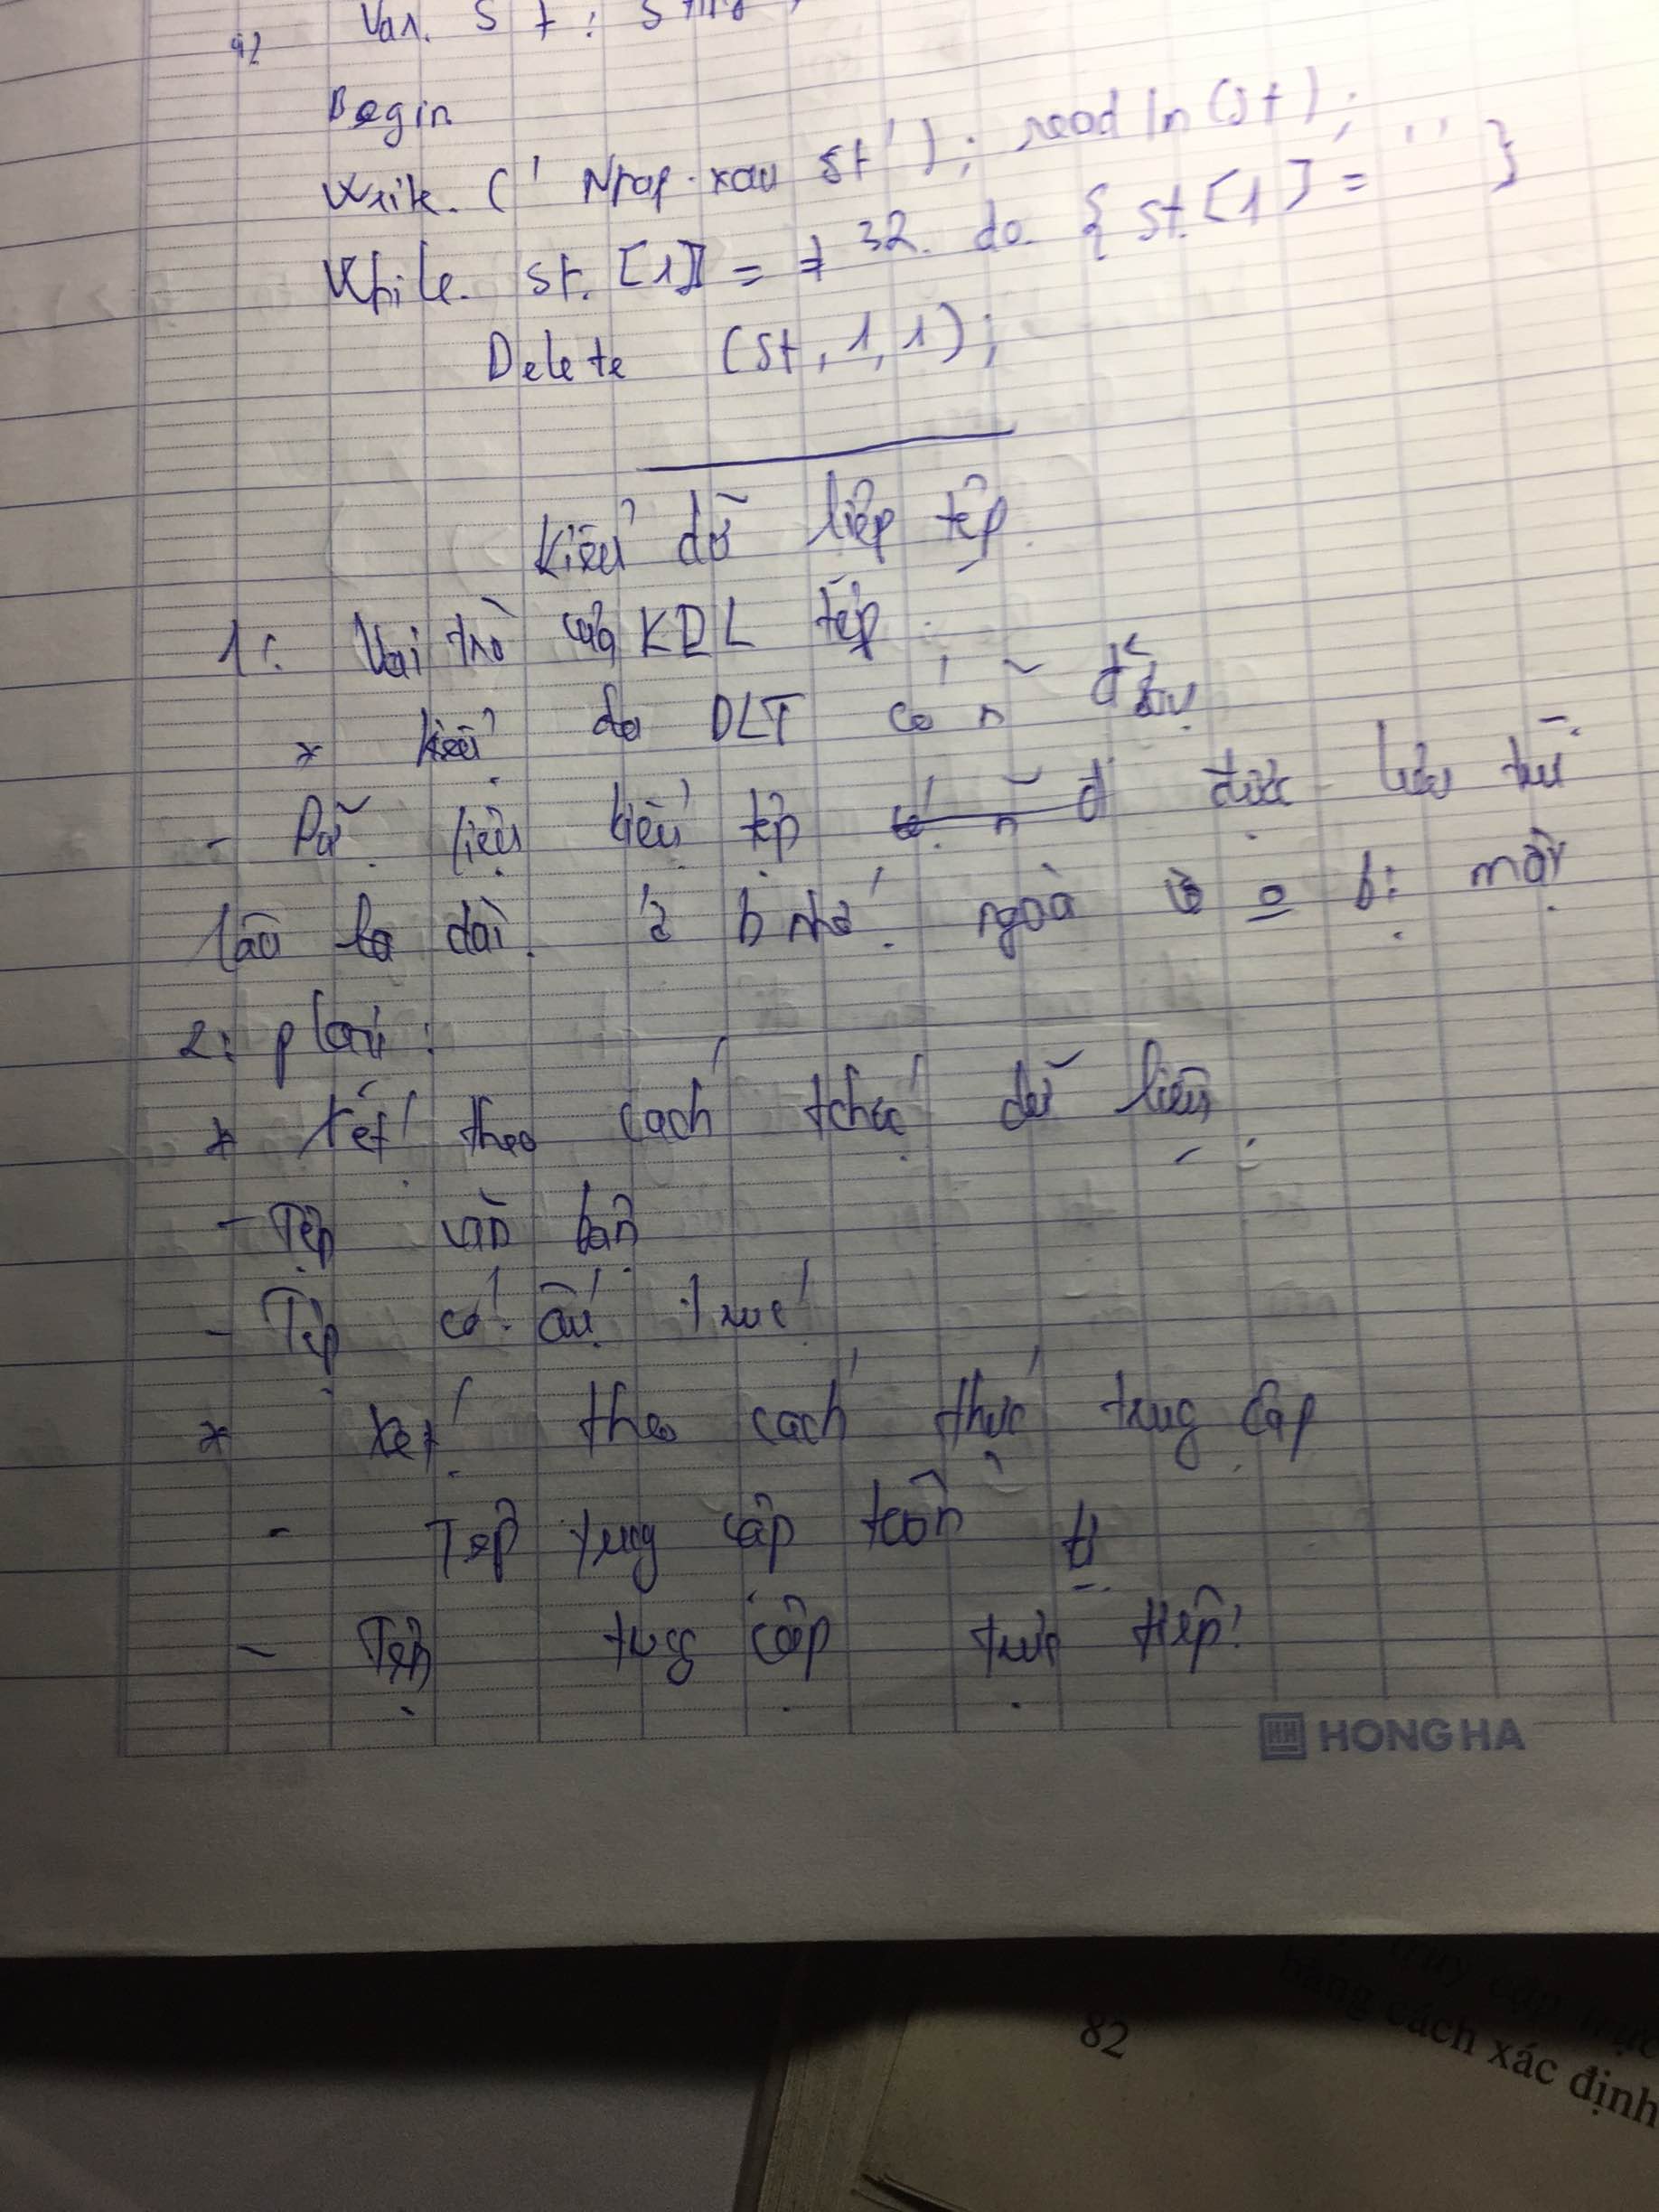 Var. St :
Begin
Write. (' Nhap xau st'); readln(st);
While. st. [1] = # 32. do. { st. [1] = ' ' }
Delete (st, 1, 1);
Kiểu dữ liệu tệp
1: Vai trò của KDL tệp
* kiểu do DLT có n đ
- Dữ liệu kiểu tệp được lưu trữ
lâu la dài. ở b nhớ ngoài và o bị mất
2: p loại :
* Xét theo cách tchức dữ liệu
- Tệp văn bản
- Tệp có cấu trúc
* Xét theo cách thức truy cập
- Tệp truy cập tuần tự
- Tệp truy cập trực tiếp
HONG HA
82
truy cập trực
bằng cách xác định